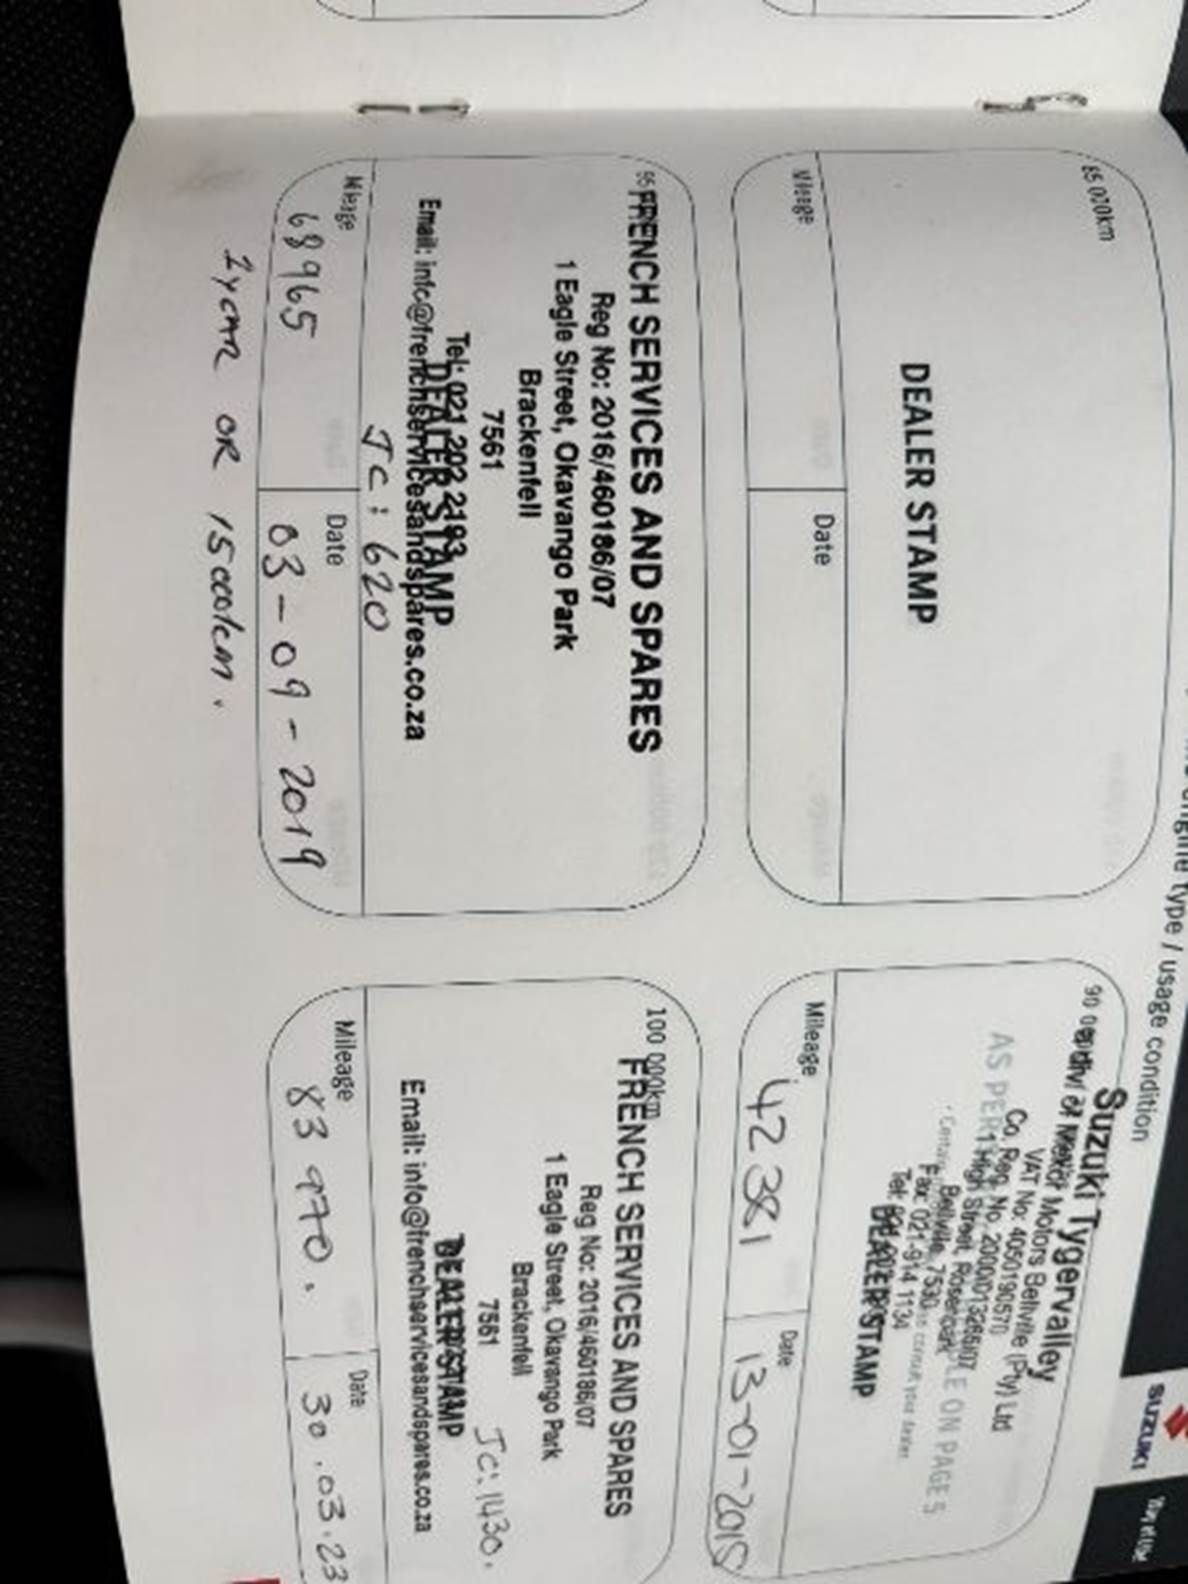 engine type / usage condition
SUZUKI
Way of Life!
85 000km
DEALER STAMP
Mileage
Date
90 000km
Suzuki Tygervalley
a div. of Mekor Motors Bellville (Pty) Ltd
VAT No. 4050190570
Co. Reg. No. 2000/013286/07
1 High Street, Rosenpark
Bellville, 7530
Fax: 021-914 1134
Tel:
AS PER
LE ON PAGE 5
DEALER STAMP
Mileage
42 381
Date
13-01-2015
95
FRENCH SERVICES AND SPARES
Reg No: 2016/460186/07
1 Eagle Street, Okavango Park
Brackenfell
7561
Tel: 021 202 2193
DEALER STAMP
Email: info@frenchservicesandspares.co.za
JC: 620
Mileage
68965
Date
03-09-2019
1 year OR 15000km.
100 000km
FRENCH SERVICES AND SPARES
Reg No: 2016/460186/07
1 Eagle Street, Okavango Park
Brackenfell
7561
JC: 1430.
DEALER STAMP
Email: info@frenchservicesandspares.co.za
Mileage
83 970.
Date
30.03.23